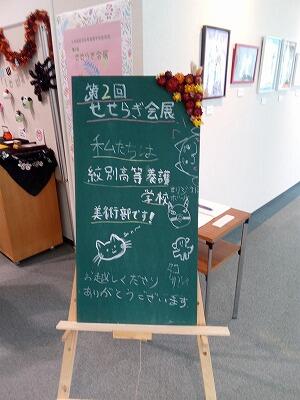 せせらぎ会展
第2回
せせらぎ会展
私たちは
紋別高等養護
学校
美術部です！
お越しくださり
ありがとうございます